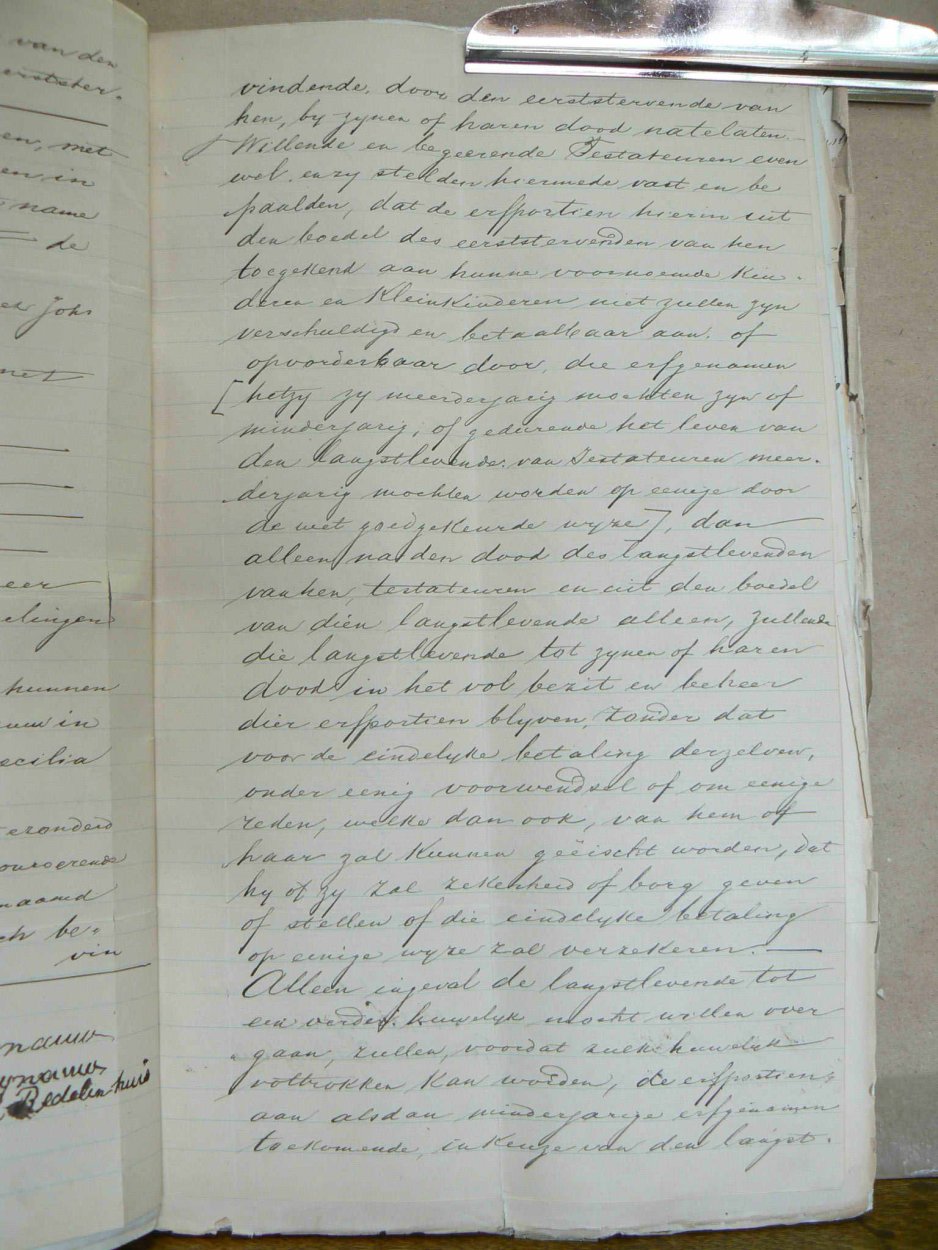 van den
erstster.
en, met
en in
name
de
Johs
met
eer
elingen
kunnen
in
ecilia
ezonderd
naamd
ch be-
vin
Redelinhuis
vindende, door den eerststervende van
hen, by zynen of haren dood natelaten.
Willende en begeerende Testateuren even
wel, en zy stelden hiermede vast en be
paalden, dat de erfportien hierin uit
den boedel des eerststervenden van hen
toegekend aan hunne voornoemde Kin-
deren en Kleinkinderen niet zullen zyn
verschuldigd en betaalbaar aan, of
opvorderbaar door, die erfgenamen
[hetzy zy meerderjarig mochten zyn of
minderjarig, of gedurende het leven van
den langstlevende van Testateuren meer-
derjarig mochten worden op eenige door
de wet goedgekeurde wyze], dan
alleen na den dood des langstlevenden
van hen, testateuren en uit den boedel
van dien langstlevende alleen, zullende
die langstlevende tot zynen of haren
dood in het vol bezit en beheer
dier erfportien blyven, zonder dat
voor de eindelyke betaling derzelven,
onder eenig voorwendsel of om eenige
reden, welke dan ook, van hem of
haar zal kunnen geëischt worden, dat
hy of zy zal zekerheid of borg geven
of stellen of die eindelyke betaling
op eenige wyze zal verzekeren.
Alleen ingeval de langstlevende tot
een verder huwelyk mocht willen over
gaan, zullen, voordat zulk huwelyk
voltrokken kan worden, de erfportien,
aan alsdan minderjarige erfgenamen
toekomende, in keuze van den langst-